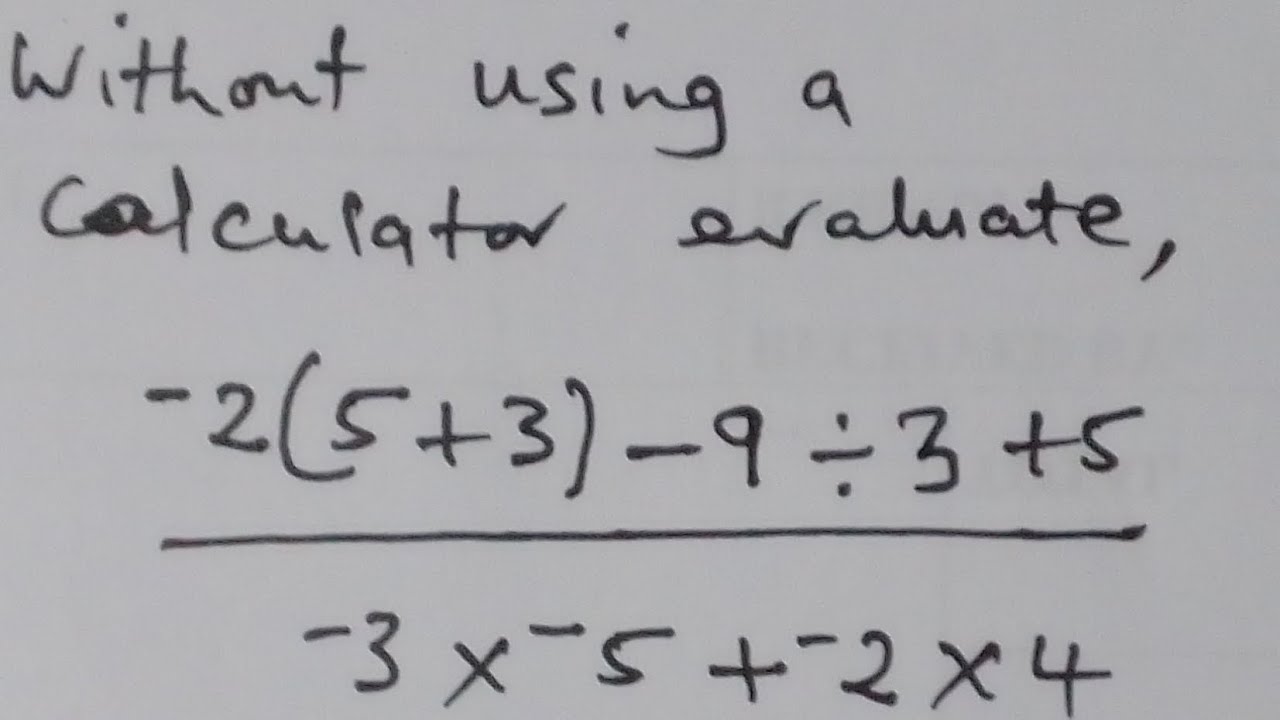 Without using a
calculator evaluate,
⁻2(5+3) - 9 ÷ 3 + 5
⁻3 × ⁻5 + ⁻2 × 4